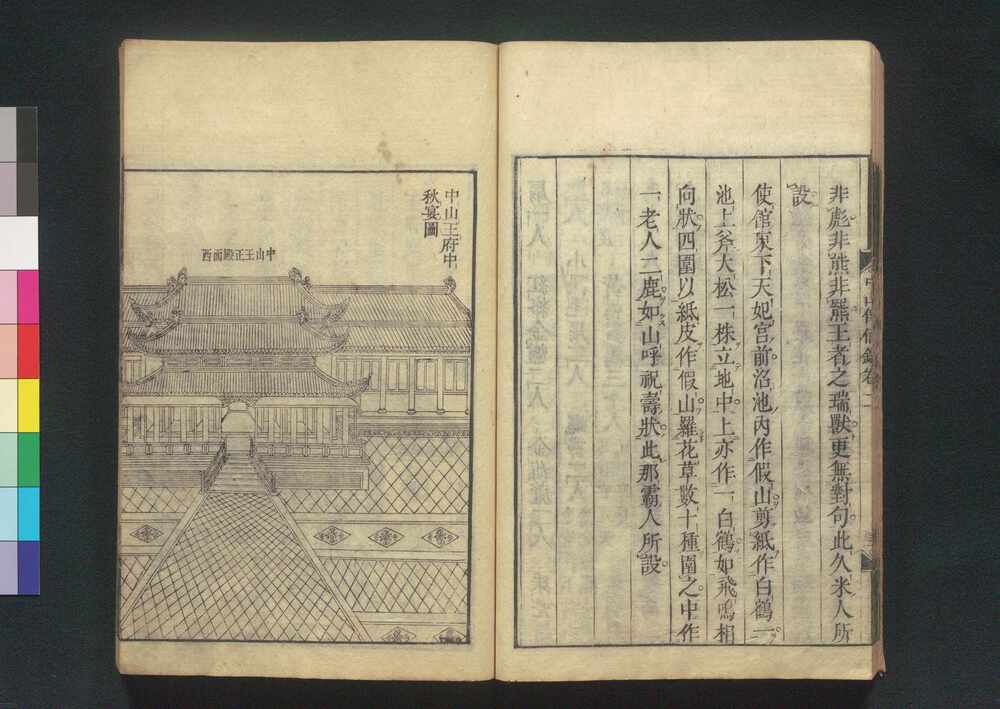 非彪非熊非羆王者之瑞獸更無對句此久米人所
設
使館東下天妃宮前沿池內作假山剪紙作白鶴一
池上峯大松一株立地中上亦作一白鶴如飛鳴相
向狀四圍以紙皮作假山羅花草數十種圍之中作
一老人二鹿如山呼祝壽狀此那霸人所設
中山傳信錄卷二
中山王府中
秋宴圖
中山王正殿面西